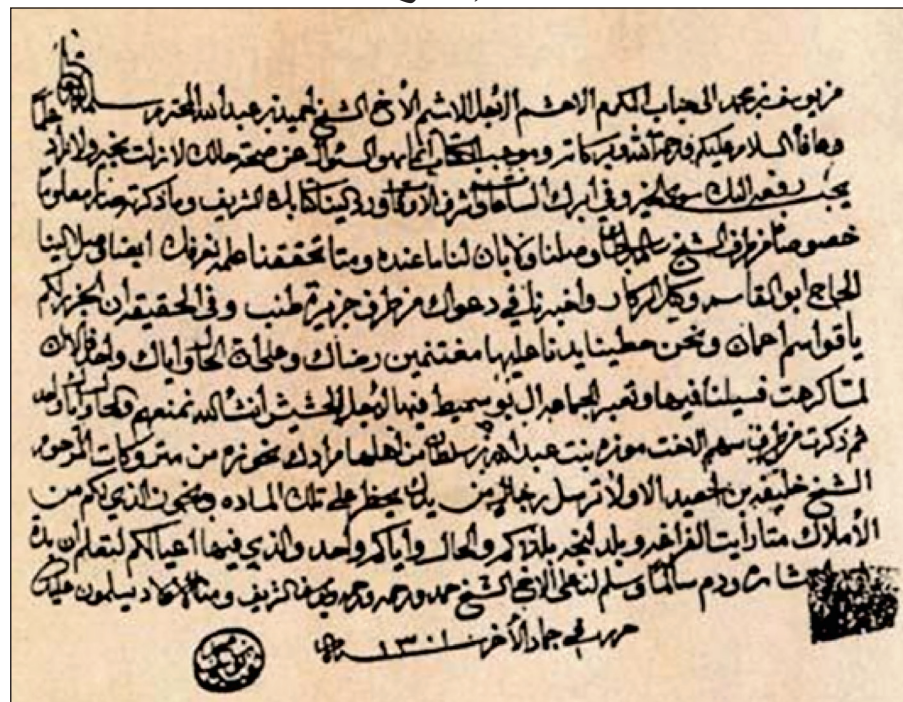 من يوسف بن محمد الى جناب المكرم الاحشم الاجل الاشيم الأخ الشيخ احميد بن عبدالله المحترم سلمه الله
وعافاه السلام عليكم ورحمة الله وبركاته وموجب الكتاب انما هو السئوال عن صحة حالك لازلت بخير ولا نراد
الخير وفي ابرك الساعات واشرف الاوقات ورد الينا كتابك الشريف وما ذكرته صار معلوما
خصوصا من طرف الشيخ وصلنا ولا بان لنا ما عنده ومتا تحققنا علمه نعرفك ايضا وصل الينا
الحاج ابو القاسم وكيل الركار واخبرنا في دعواك من طرف جزيرة طنب وفي الحقيقه ان الجزر لكم
يا قواسم اعمان ونحن حطينا يدنا عليها مغتنمين رضاك وعلمات الحال واياك واحد فالان
لمتا كرهت فسيلنا فيها وتعبر الجماعه ال بوسميط فيها لاجل الحشيش انشالله نمنعهم والحال واياك واحد
ثم ذكرت من طرف سهم الاخت موزه بنت عبدالله بن سلطان من اهلها مرادك تحوزه من متروكات المرحوم
الشيخ خليفه بن احميد الاولا ترسل رجال من يدك يحظر على تلك الماده الذي لكم من
الأملاك متا رأيت الفراغه وبلد لنجه بلدكم والحال واياكم واحد والذي فيها اعيالكم لتعلم ان بدة
ودم سالما وسلم لنا على الاخ الشيخ حمد ورحمه الشريف ومنا الاولاد يسلمون عليك
حرر في جماد الأخر سنة ١٣٠١